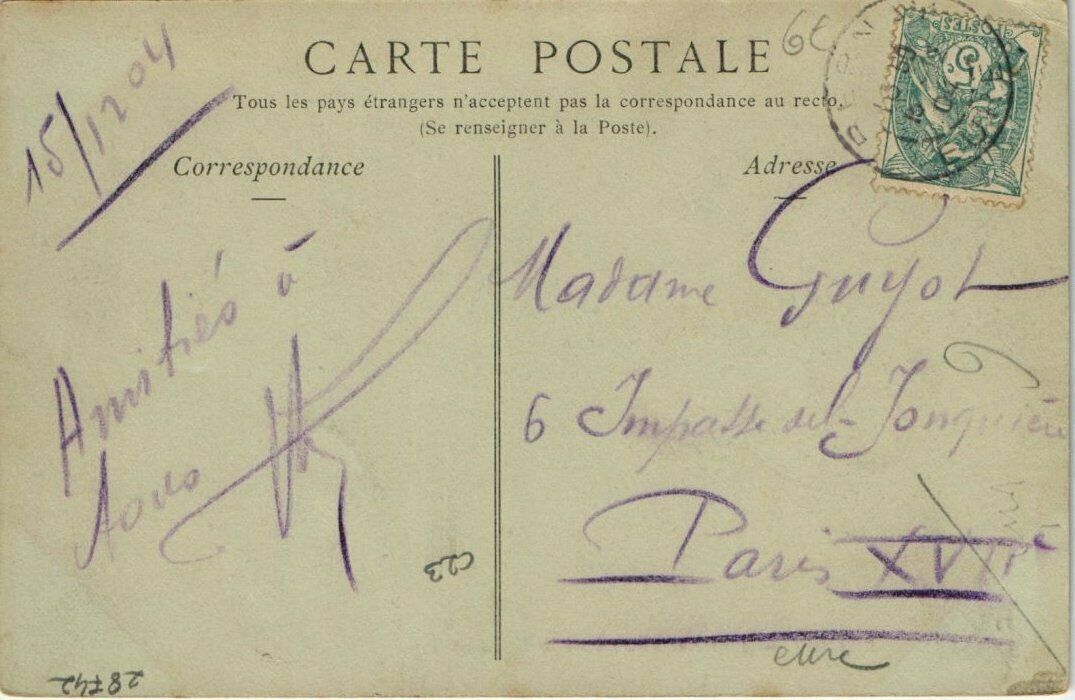 CARTE POSTALE
Tous les pays étrangers n'acceptent pas la correspondance au recto.
(Se renseigner à la Poste).
Correspondance
Adresse
6€
POSTES
5
15/12 04
Amitiés à
tous
Madame Guyot
6 Impasse de la Jonquière
Paris XVIIe
eure
C23
28742